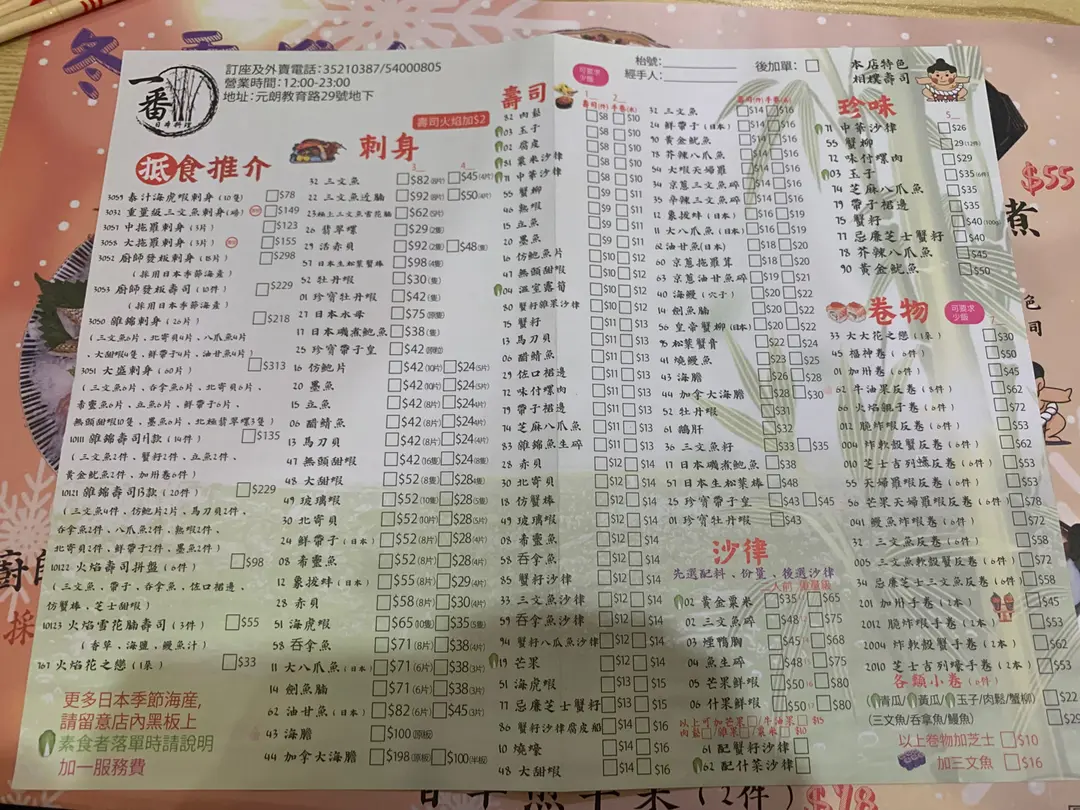 一番
日本料理
訂座及外賣電話:35210387/54000805
營業時間:12:00-23:00
地址:元朗教育路29號地下
枱號:
經手人:
後加單:
本店特色
相撲壽司
抵食推介
3032 重量級三文魚刺身 $149
3051 中拖羅刺身(3片) $123
3058 大拖羅刺身(3片) $155
3052 廚師發板刺身 $298
(採用日本季節海產)
3053 廚師發板壽司(10件) $229
(採用日本季節海產)
3050 雜錦刺身(26片) $218
(三文魚6片,北寄貝4片,八爪魚4片
,大甜蝦4隻,鮮帶子4片,油甘魚4片)
3051 大盛刺身(60片) $313
(三文魚6片,吞拿魚6片,北寄貝6片,
希靈魚6片,立魚6片,鮮帶子6片,
無頭甜蝦10隻,墨魚6片,北極翡翠螺3隻)
$135
(三文魚2件,蟹籽2件,立魚2件,
黃金魷魚2件,加州卷6件)
10121 雜錦壽司B款(20件) $229
吞拿魚2件,八爪魚2件,熟蝦2件,
北寄貝2件,鮮帶子2件,墨魚2件)
10122 火焰壽司拼盤(6件) $98
(三文魚,帶子,吞拿魚,左口裙邊,
仿蟹棒,芝士甜蝦)
10123 火焰雪花腩壽司(3件) $55
(香草,海鹽,鰻魚汁)
火焰花之戀(1客) $33
更多日本季節海産,
請留意店內黑板上
素食者落單時請說明
加一服務費
壽司火焰加$2
刺身
32 三文魚 $82(8片) $45(4片)
22 三文魚边腩 $92(8片) $50(4片)
23 極上三文魚雪花腩 $62(5片)
26 翡翠螺 $29(2隻)
29 活赤貝 $92(2隻) $48(隻)
57 日本生松葉蟹棒 $98(4隻)
52 牡丹蝦 $30(隻)
01 珍寶牡丹蝦 $42(隻)
27 日本水母 $75(原隻)
17 日本磯煮鮑魚 $38(隻)
25 珍寶帶子皇 $42(原粒)
16 仿鮑片 $42(10片) $24(5片)
20 墨魚 $42(10片) $24(5片)
15 立魚 $42(8片) $24(4片)
06 醋鯖魚 $42(8片) $24(4片)
13 馬刀貝 $42(8片) $24(4片)
47 無頭甜蝦 $42(16隻) $24(8隻)
48 大甜蝦 $52(8隻) $28(4隻)
49 玻璃蝦 $52(10隻) $28(5隻)
30 北寄貝 $52(10片) $28(5片)
24 鮮帶子(日本) $52(8片) $28(4片)
08 希靈魚 $52(8片) $28(4片)
12 象拔蚌(日本) $55(8片) $29(4片)
28 赤貝 $58(8片) $30(4片)
51 海虎蝦 $65(10隻) $35(5隻)
58 吞拿魚 $71(8片) $38(4片)
11 大八爪魚(日本) $71(6片) $38(3片)
14 劍魚腩 $71(6片) $38(3片)
62 油甘魚(日本) $82(6片) $45(3片)
43 海膽 $100(原板)
44 加拿大海膽 $198(原板) $100(半板)
壽司
可要求
少飯
壽司(件) 手卷(本)
82 肉鬆 $8 $10
03 玉子 $8 $10
02 腐皮 $8 $10
81 粟米沙律 $8 $10
71 中華沙律 $9 $11
55 蟹柳 $9 $11
46 熟蝦 $9 $11
15 立魚 $9 $11
20 墨魚 $9 $11
16 仿鮑魚片 $10 $12
47 無頭甜蝦 $10 $12
04 溫室露筍 $10 $12
80 蟹柳雜果沙律 $10 $12
75 蟹籽 $11 $13
13 馬刀貝 $11 $13
06 醋鯖魚 $11 $13
29 左口裙邊 $11 $13
72 味付螺肉 $11 $13
79 帶子裙邊 $11 $13
74 芝麻八爪魚 $11 $13
83 雜錦魚生碎 $11 $13
28 赤貝 $12 $14
30 北寄貝 $12 $14
18 仿蟹棒 $12 $14
49 玻璃蝦 $12 $14
08 希靈魚 $12 $14
58 吞拿魚 $12 $14
85 蟹籽沙律 $12 $14
33 三文魚沙律 $12 $14
59 吞拿魚沙律 $12 $14
94 蟹籽八爪魚沙律 $12 $14
19 芒果 $12 $14
51 海虎蝦 $13 $15
77 忌廉芝士蟹籽 $13 $15
86 蟹籽沙律腐皮船 $14 $16
10 燒蠔 $14 $16
48 大甜蝦 $14 $16
壽司(件) 手卷(本)
32 三文魚 $14 $16
24 鮮帶子(日本) $14 $16
90 黃金魷魚 $14 $16
78 芥辣八爪魚 $14 $16
54 大蝦天婦羅 $14 $16
34 京蔥三文魚碎 $14 $16
35 辛辣三文魚碎 $14 $16
12 象拔蚌(日本) $16 $19
11 大八爪魚(日本) $16 $19
62 油甘魚(日本) $18 $20
60 京蔥拖羅茸 $18 $20
63 京蔥油甘魚碎 $19 $21
40 海鰻(穴子) $20 $22
14 劍魚腩 $20 $22
56 皇帝蟹柳(日本) $20 $22
95 松葉蟹膏 $22 $24
41 燒鰻魚 $23 $25
43 海膽 $26 $28
44 加拿大海膽 $28 $30
52 牡丹蝦 $31
61 鵝肝 $32
36 三文魚籽 $33 $35
17 日本磯煮鮑魚 $38
57 日本生松葉棒 $48
25 珍寶帶子皇 $43 $45
01 珍寶牡丹蝦 $43
沙律
先選配料、份量、後選沙律
02 黃金粟米 $35 $65
02 三文魚碎 $45
03 煙鴨胸 $45 $68
04 魚生碎 $48 $75
05 芒果鮮蝦 $50 $80
06 什果鮮蝦 $50 $80
以上可加芒果 / 牛油果 $15
肉鬆 / 雜果 / 粟米 $10
61 配蟹籽沙律
62 配什菜沙律
珍味
71 中華沙律 $26
55 蟹柳 $29
72 味付螺肉 $29
03 玉子 $35
74 芝麻八爪魚 $35
79 帶子裙邊 $35
75 蟹籽 $40(100g)
77 忌廉芝士蟹籽 $40
78 芥辣八爪魚 $45
90 黃金魷魚 $50
卷物
可要求
少飯
33 大大花之戀(1客) $30
45 福神卷(6件) $50
01 加州卷(6件) $45
62 牛油果反卷(8件) $62
66 火焰親子卷(6件) $72
012 脆炸蝦反卷(6件) $53
004 炸軟殼蟹反卷(6件) $62
010 芝士吉列蠔反卷(6件) $53
55 天婦羅蝦反卷(6件) $53
56 芒果天婦羅蝦反卷(6件) $78
041 鰻魚炸蝦卷(6件) $72
32 三文魚反卷(6件) $58
005 三文魚軟殼蟹反卷(6件) $72
34 忌廉芝士三文魚反卷(6件) $58
201 加州手卷(2本) $45
2012 脆炸蝦手卷(2本) $53
2004 炸軟殼蟹手卷(2本) $62
2010 芝士吉列蠔手卷(2本) $53
各類小卷(6件)
(青瓜/黃瓜/玉子/肉鬆/蟹柳) $22
(三文魚/吞拿魚/鰻魚)
以上卷物加芝士 $10
加三文魚 $16
$55
煮
色
司
廚
採
(2件) $98